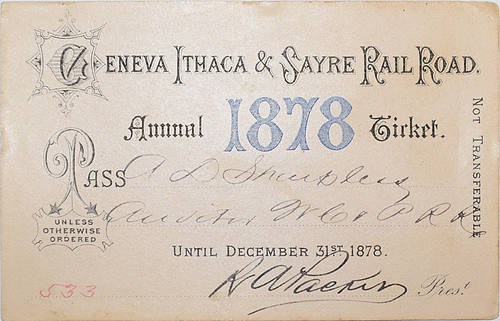 Geneva Ithaca & Sayre Rail Road.
Annual 1878 Ticket.
Pass A L Sharpless
Auditor W C & P R R
UNLESS
OTHERWISE
ORDERED
NOT TRANSFERABLE
UNTIL DECEMBER 31ST 1878.
533 R A Packer Prest.